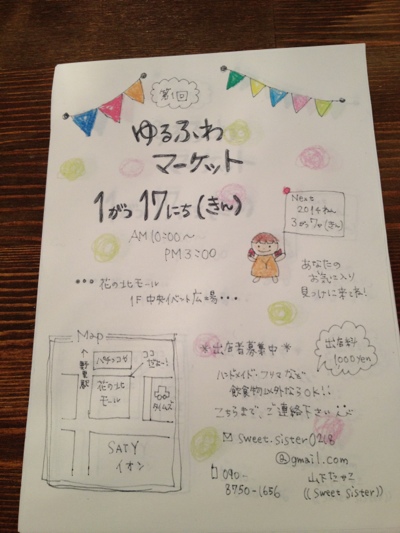 第1回
ゆるふわ
マーケット
1がつ17にち(きん)
AM10:00〜
PM3:00
Next
2014ねん
3がつ7か(きん)
あなたの
お気に入り
見つけに来てね!
花の北モール
1F 中央イベント広場・・・
Map
パチンコヤ
ココだよー!
花の北
モール
SATY
イオン
*出店者募集中*
出店料
1000yen
ハンドメイド・フリマなど
飲食物以外ならOK!!
こちらまで、ご連絡下さい
sweet.sister0218
@gmail.com
090-
8750-1656
((Sweet Sister))